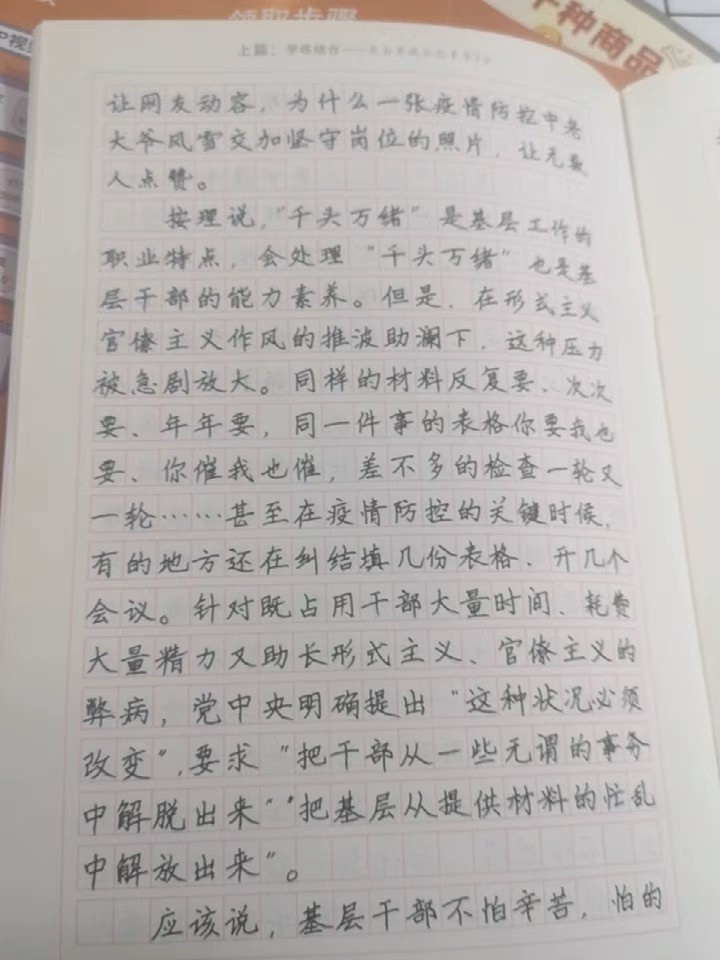 领取步骤
十种商品
上篇：学练结合
让网友动容，为什么一张疫情防控中老
大爷风雪交加坚守岗位的照片，让无数
人点赞。
按理说，“千头万绪”是基层工作的
职业特点，会处理“千头万绪”也是基
层干部的能力素养。但是，在形式主义
官僚主义作风的推波助澜下，这种压力
被急剧放大。同样的材料反复要、次次
要、年年要，同一件事的表格你要我也
要、你催我也催，差不多的检查一轮又
一轮……甚至在疫情防控的关键时候，
有的地方还在纠结填几份表格、开几个
会议。针对既占用干部大量时间、耗费
大量精力又助长形式主义、官僚主义的
弊病，党中央明确提出“这种状况必须
改变”，要求“把干部从一些无谓的事务
中解脱出来”“把基层从提供材料的忙乱
中解放出来”。
应该说，基层干部不怕辛苦，怕的